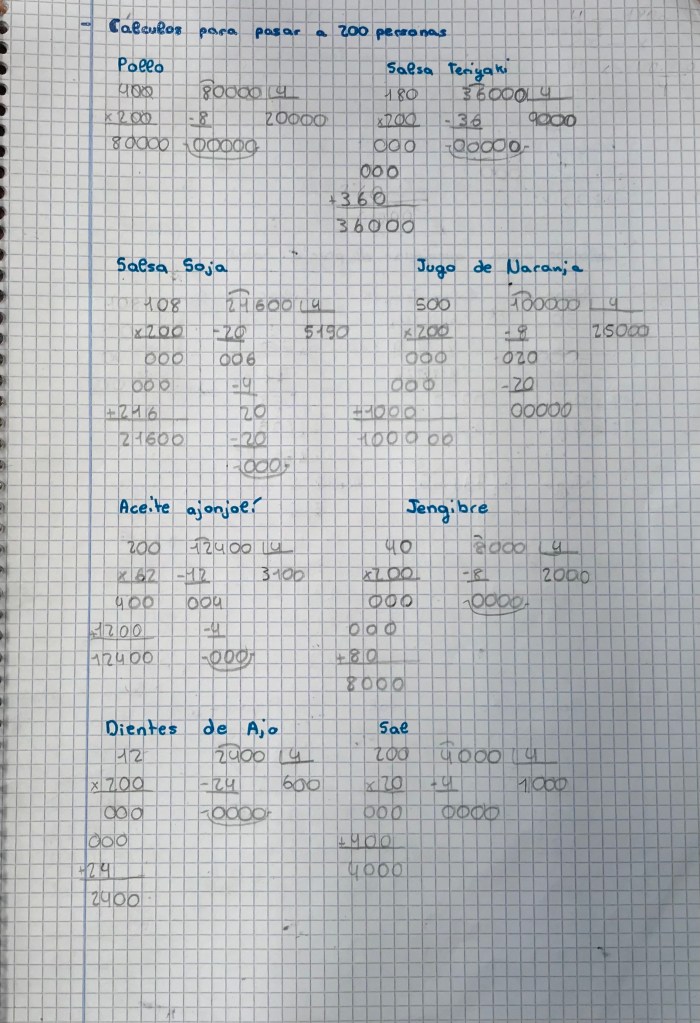 - Cálculos para pasar a 200 personas
Pollo Salsa Teriyaki
400 80000 4 180 36000 4
x200 -8 20000 x200 -36 9000
80000 00000 000 00000
000
+360
36000
Salsa Soja Jugo de Naranja
108 21600 4 500 100000 4
x200 -20 5190 x200 -8 25000
000 006 000 020
000 -4 000 -20
+216 20 +1000 00000
21600 -20 100000
000
Aceite ajonjolí Jengibre
200 12400 4 40 8000 4
x62 -12 3100 x200 -8 2000
400 004 000 0000
+1200 -4 000
12400 000 +80
8000
Dientes de Ajo Sal
12 2400 4 200 4000 4
x200 -24 600 x20 -4 1000
000 0000 000 0000
000 +400
+24 4000
2400